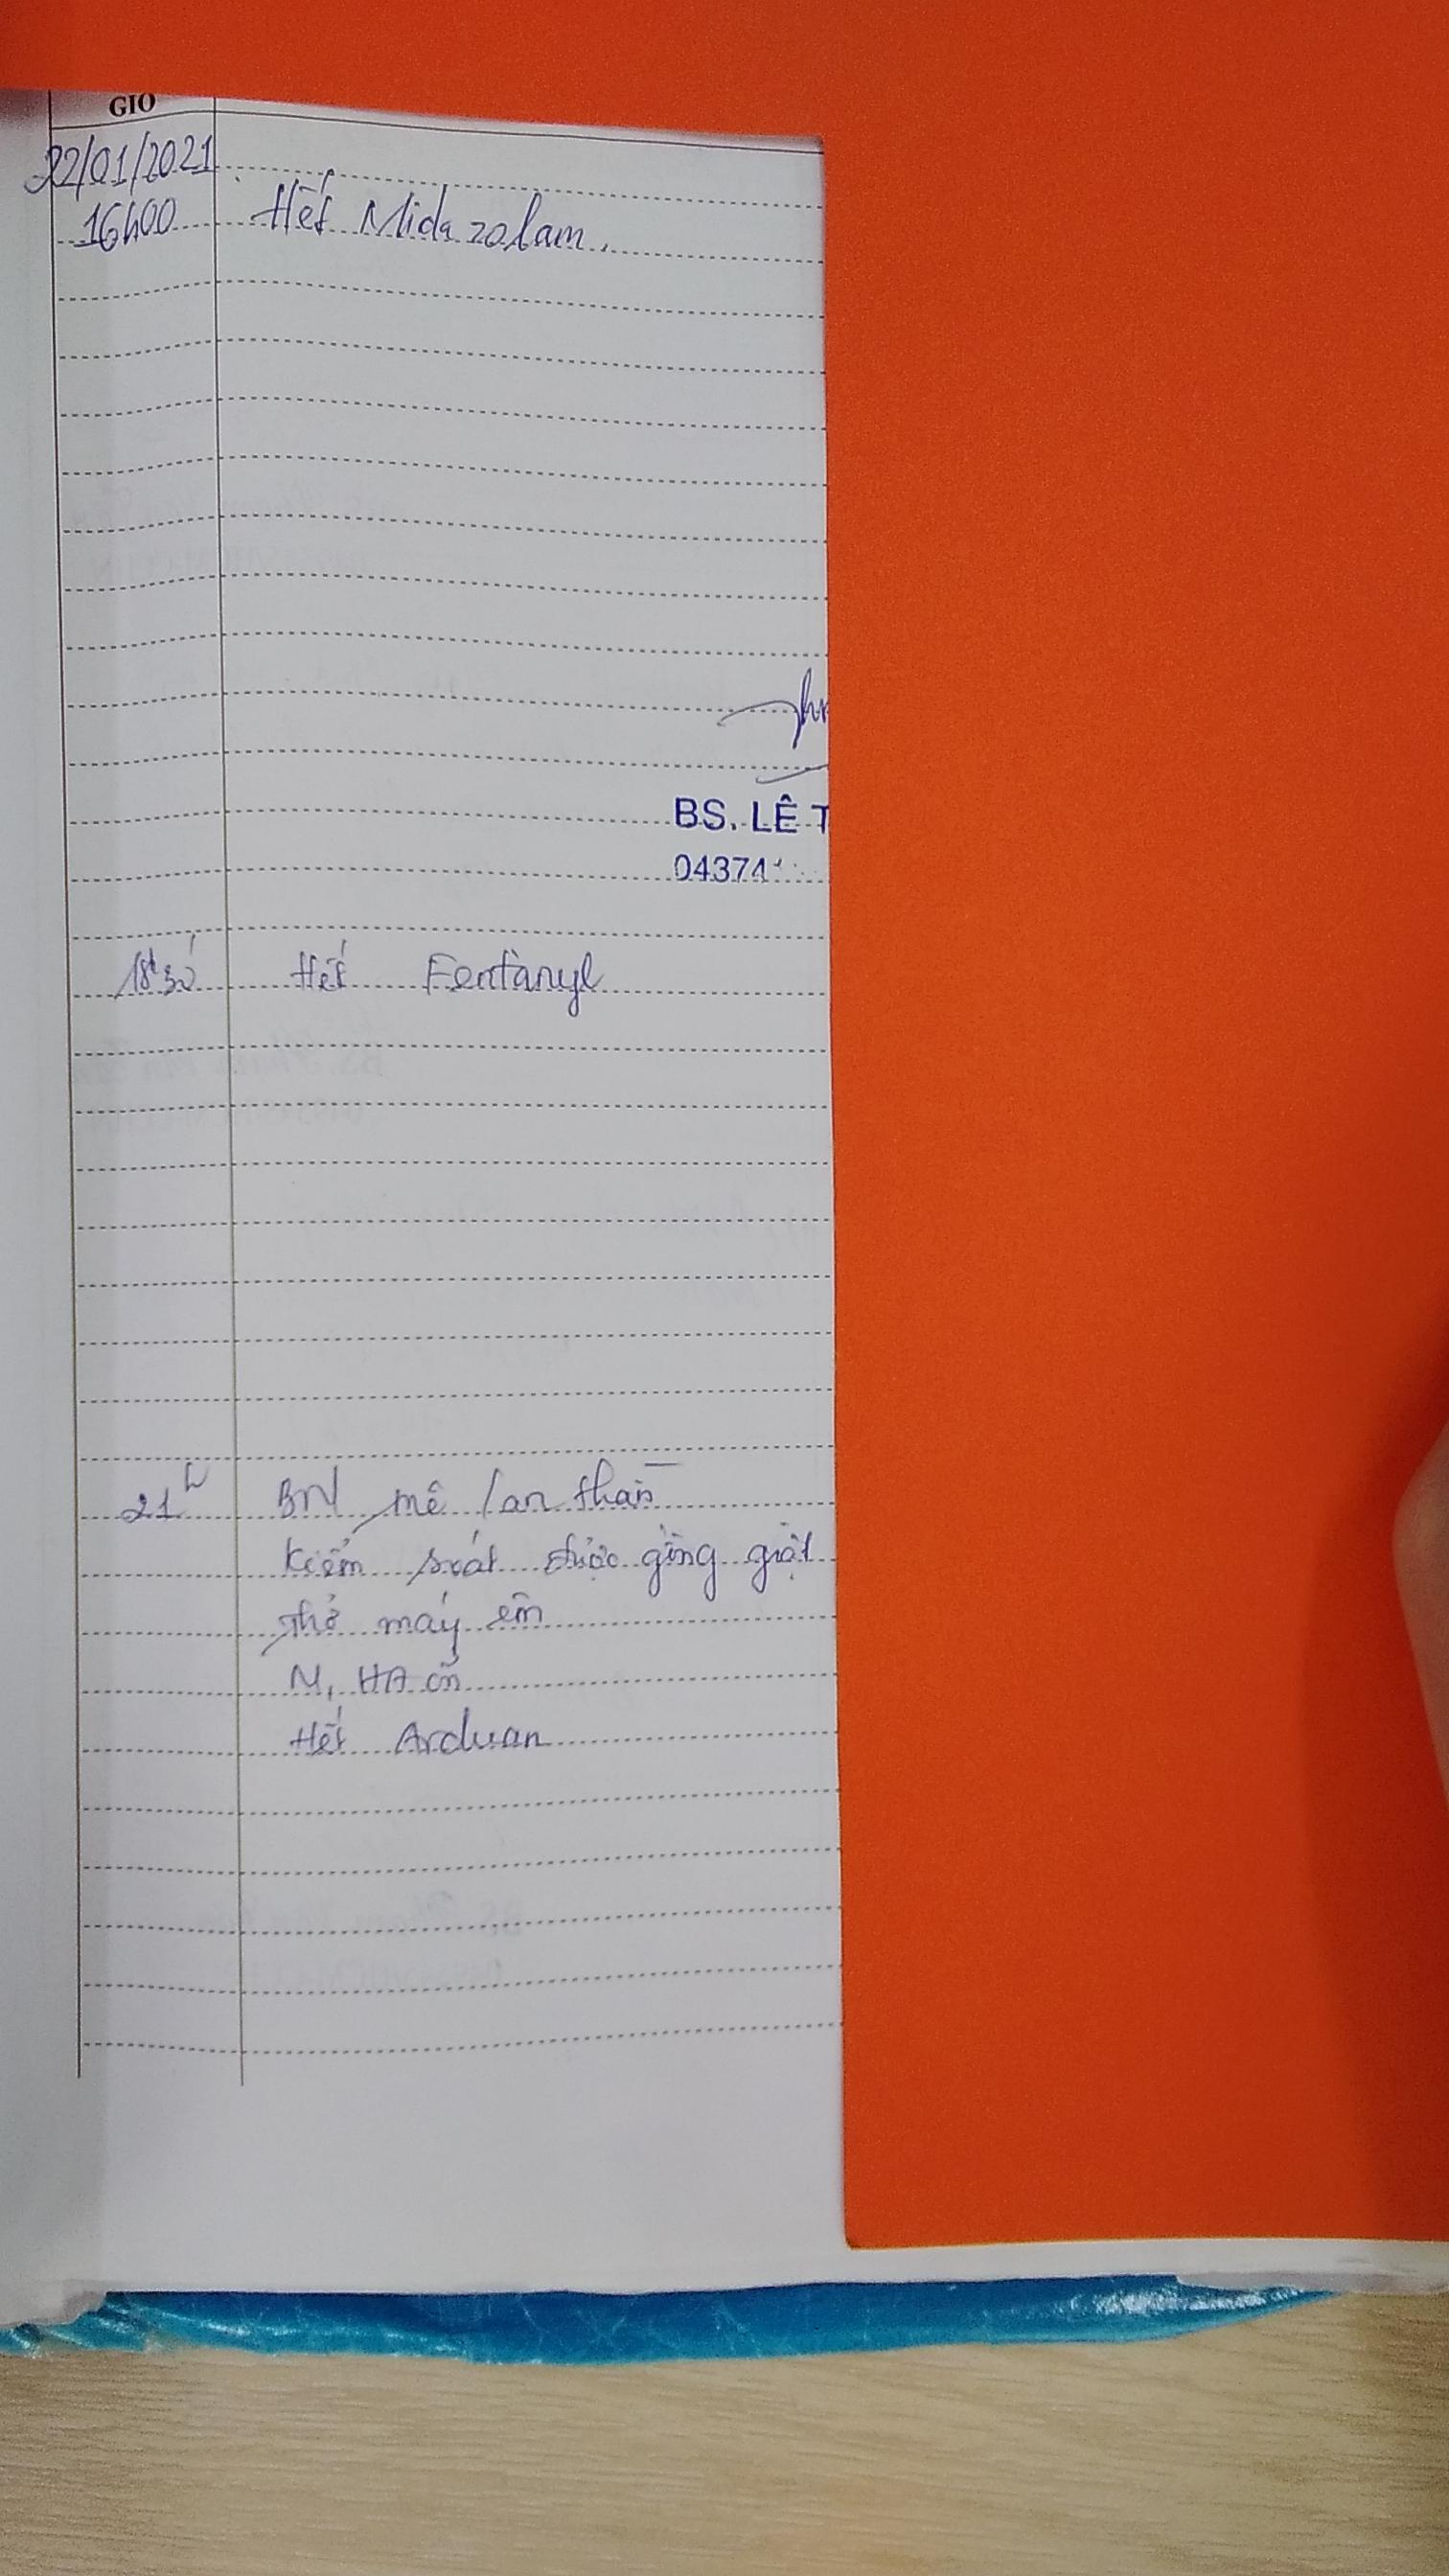 GIỜ
22/01/2021
16h00 Hết Midazolam.
BS. LÊ T
04374
18h30' Hết Fentanyl
21h BN mê / an thần
Kiểm soát được gồng giật
Thở máy êm
M, HA ổn
Hết Arduan